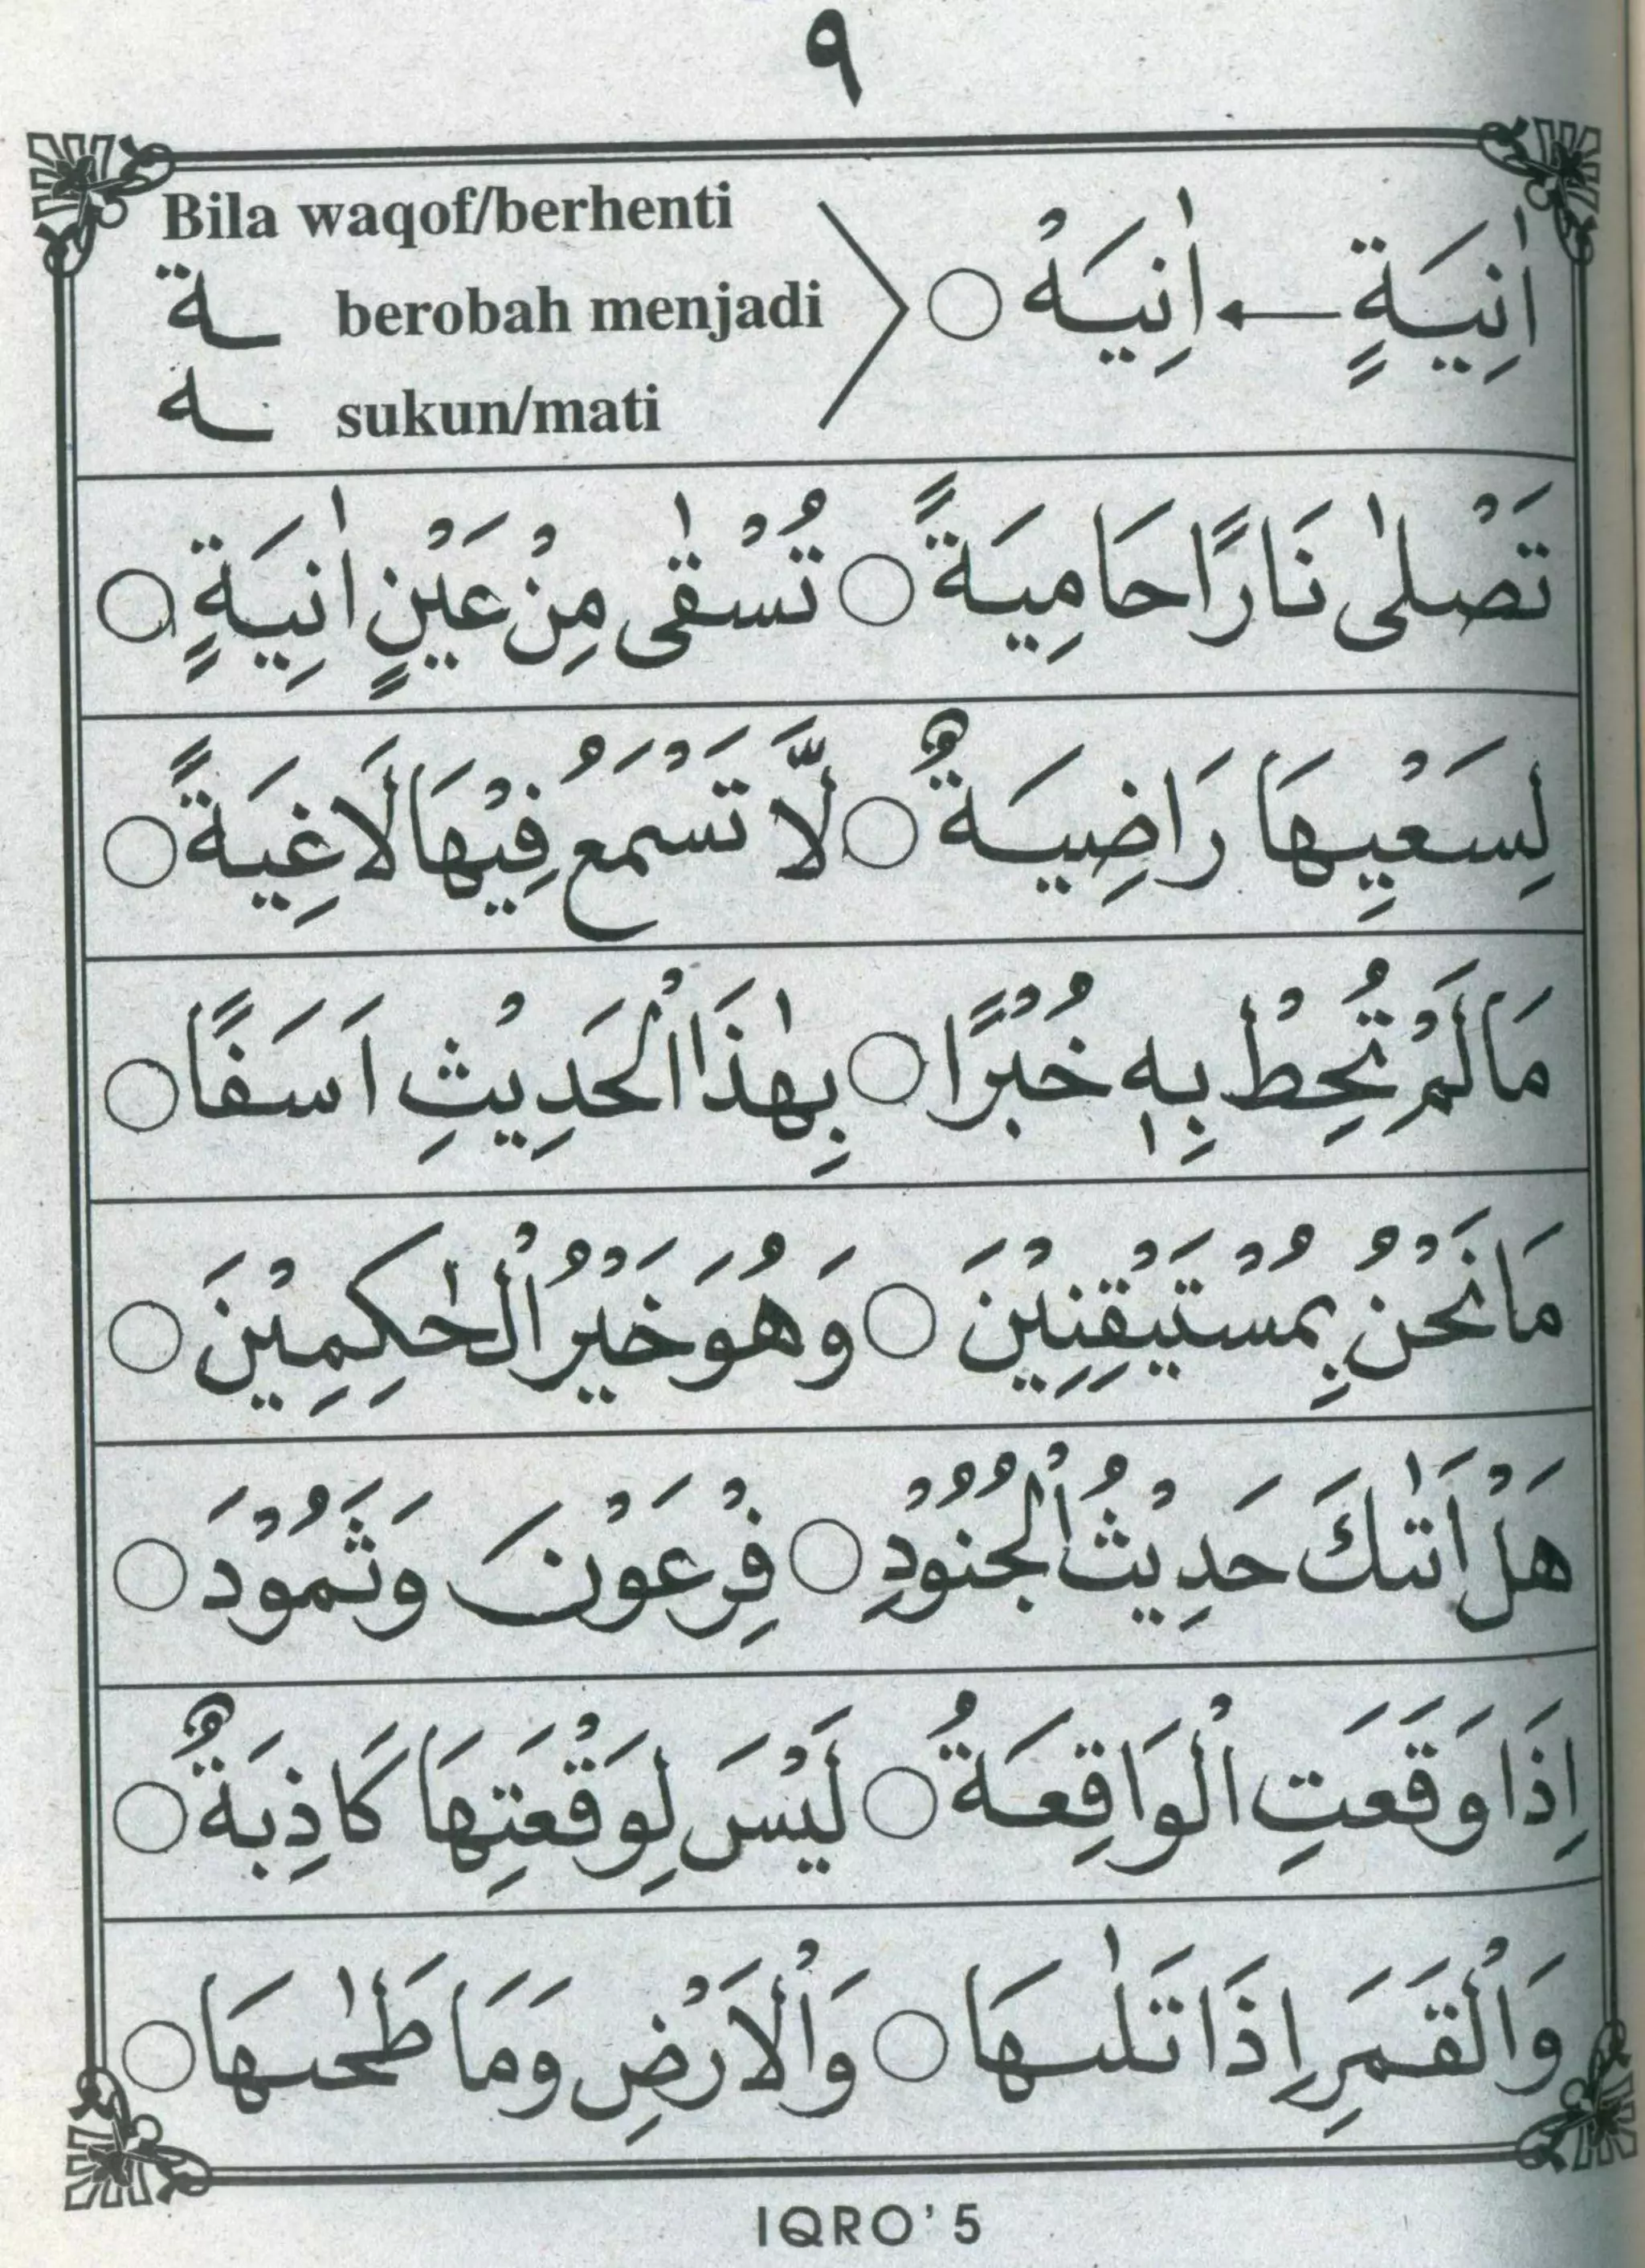 ٩
اٰنِيَةٍ ← اٰنِيَهْ ○
Bila waqof/berhenti
ـة berobah menjadi
ـه sukun/mati
تَصْلٰى نَارًا حَامِيَةً ○ تُسْقٰى مِنْ عَيْنٍ اٰنِيَةٍ ○
لِسَعْيِهَا رَاضِيَةٌ ○ لَّا تَسْمَعُ فِيْهَا لَاغِيَةً ○
مَا لَمْ تُحِطْ بِهٖ خُبْرًا ○ بِهٰذَا الْحَدِيْثِ اَسَفًا ○
مَا نَحْنُ بِمُسْتَيْقِنِيْنَ ○ وَهُوَ خَيْرُ الْحٰكِمِيْنَ ○
هَلْ اَتٰىكَ حَدِيْثُ الْجُنُوْدِ ○ فِرْعَوْنَ وَثَمُوْدَ ○
اِذَا وَقَعَتِ الْوَاقِعَةُ ○ لَيْسَ لِوَقْعَتِهَا كَاذِبَةٌ ○
وَالْقَمَرِ اِذَا تَلٰىهَا ○ وَالْاَرْضِ وَمَا طَحٰىهَا ○
IQRO' 5